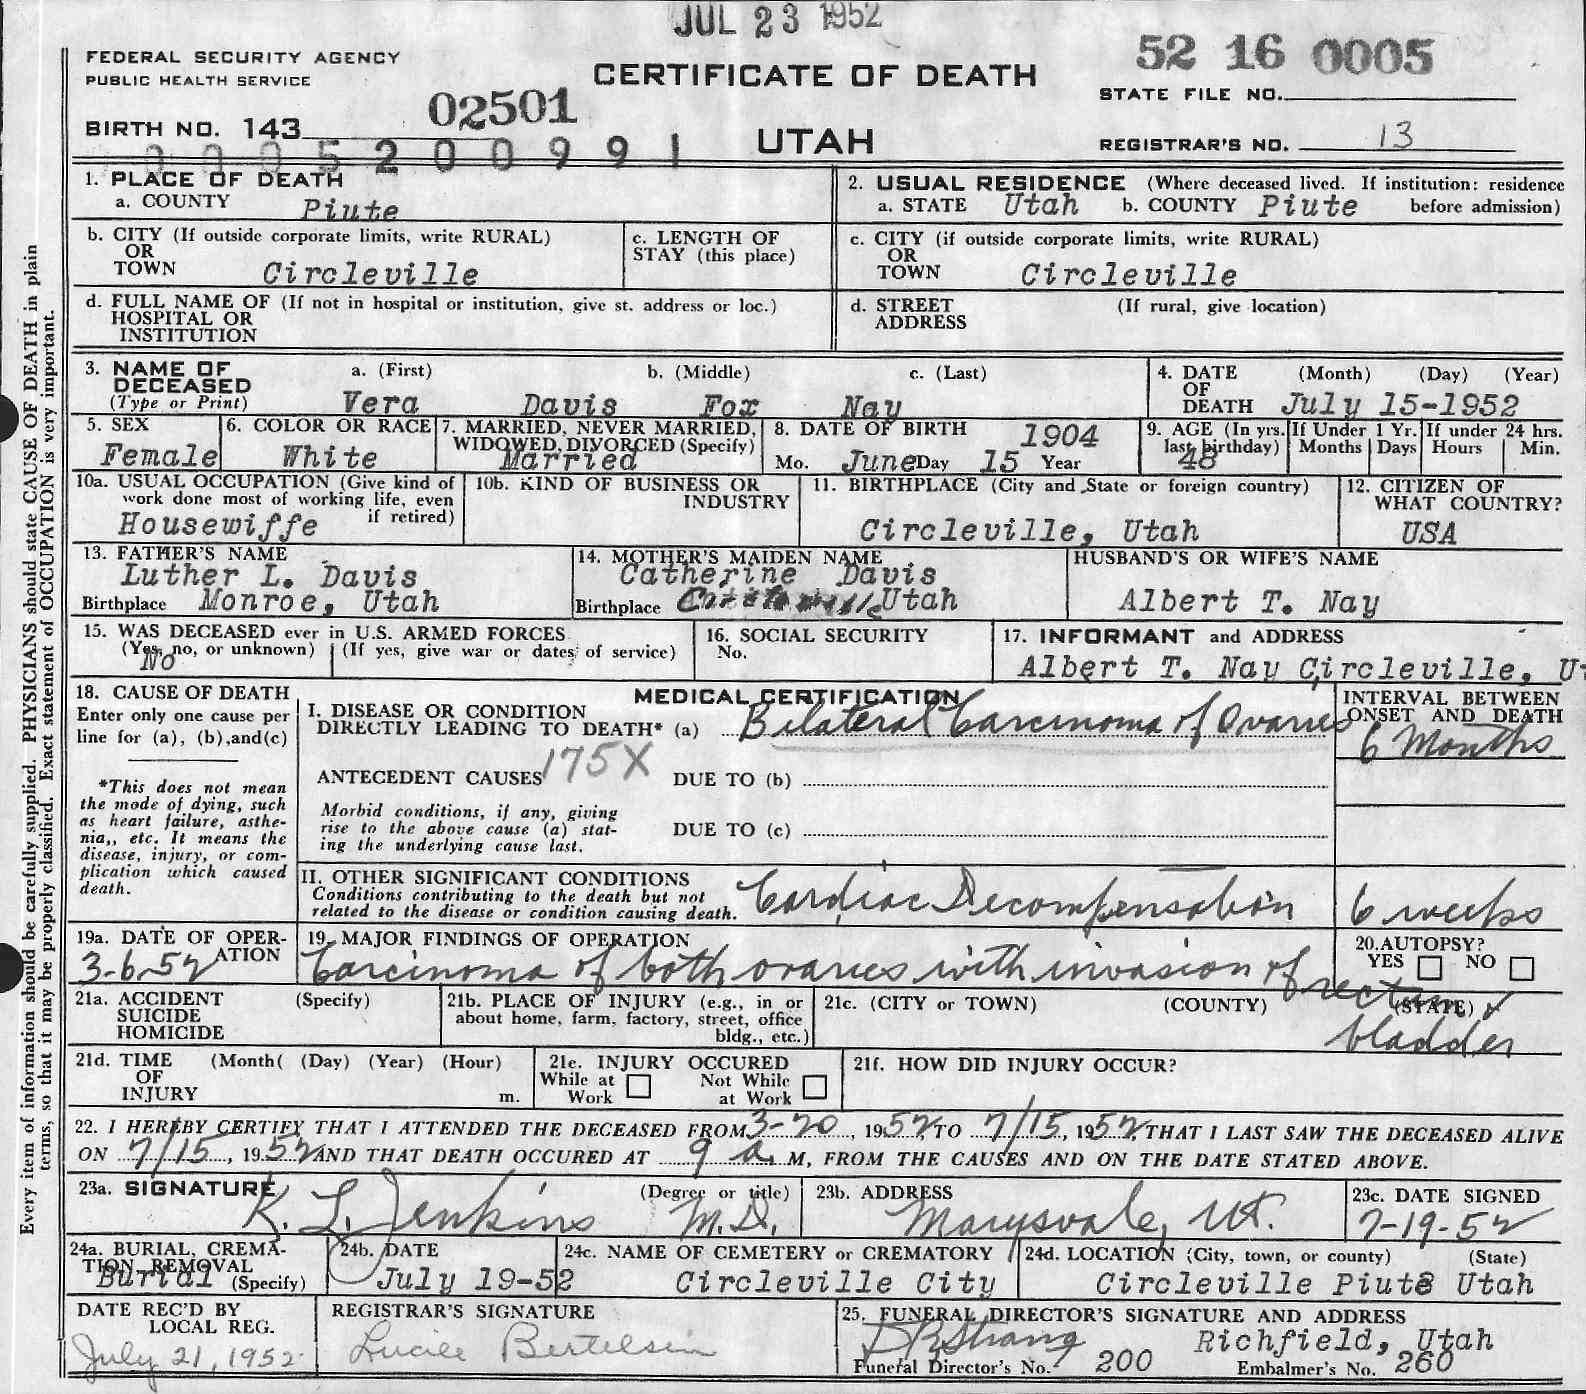 JUL 23 1952
FEDERAL SECURITY AGENCY
PUBLIC HEALTH SERVICE
CERTIFICATE OF DEATH
52 16 0005
STATE FILE NO.
02501
BIRTH NO. 143
UTAH
REGISTRAR'S NO. 13
000520 0991
1. PLACE OF DEATH
a. COUNTY Piute
2. USUAL RESIDENCE (Where deceased lived. If institution: residence before admission)
a. STATE Utah b. COUNTY Piute
b. CITY (If outside corporate limits, write RURAL)
OR
TOWN Circleville
c. LENGTH OF
STAY (this place)
c. CITY (if outside corporate limits, write RURAL)
OR
TOWN Circleville
d. FULL NAME OF (If not in hospital or institution, give st. address or loc.)
HOSPITAL OR
INSTITUTION
d. STREET (If rural, give location)
ADDRESS
3. NAME OF DECEASED
(Type or Print)
a. (First) b. (Middle) c. (Last)
Vera Davis Fox Nay
4. DATE OF DEATH (Month) (Day) (Year)
July 15-1952
5. SEX
Female
6. COLOR OR RACE
White
7. MARRIED, NEVER MARRIED,
WIDOWED, DIVORCED (Specify)
Married
8. DATE OF BIRTH 1904
Mo. June Day 15 Year
9. AGE (In yrs. last birthday)
48
If Under 1 Yr.
Months Days
If under 24 hrs.
Hours Min.
10a. USUAL OCCUPATION (Give kind of
work done most of working life, even
if retired)
Housewiffe
10b. KIND OF BUSINESS OR
INDUSTRY
11. BIRTHPLACE (City and State or foreign country)
Circleville, Utah
12. CITIZEN OF
WHAT COUNTRY?
USA
13. FATHER'S NAME
Luther L. Davis
Birthplace Monroe, Utah
14. MOTHER'S MAIDEN NAME
Catherine Davis
Birthplace Utah
HUSBAND'S OR WIFE'S NAME
Albert T. Nay
15. WAS DECEASED ever in U.S. ARMED FORCES
(Yes, no, or unknown) (If yes, give war or dates of service)
No
16. SOCIAL SECURITY
No.
17. INFORMANT and ADDRESS
Albert T. Nay Circleville, Ut
18. CAUSE OF DEATH
Enter only one cause per
line for (a), (b),and(c)
*This does not mean
the mode of dying, such
as heart failure, asthe-
nia,, etc. It means the
disease, injury, or com-
plication which caused
death.
MEDICAL CERTIFICATION
I. DISEASE OR CONDITION
DIRECTLY LEADING TO DEATH* (a) Bilateral Carcinoma of Ovaries
INTERVAL BETWEEN
ONSET AND DEATH
6 Months
ANTECEDENT CAUSES 175X DUE TO (b)
Morbid conditions, if any, giving
rise to the above cause (a) stat-
ing the underlying cause last.
DUE TO (c)
II. OTHER SIGNIFICANT CONDITIONS
Conditions contributing to the death but not
related to the disease or condition causing death.
Cardiac Decompensation 6 weeks
19a. DATE OF OPER-
ATION
3-6-52
19. MAJOR FINDINGS OF OPERATION
Carcinoma of both ovaries with invasion of rectum &
bladder
20. AUTOPSY?
YES NO
21a. ACCIDENT (Specify)
SUICIDE
HOMICIDE
21b. PLACE OF INJURY (e.g., in or
about home, farm, factory, street, office
bldg., etc.)
21c. (CITY or TOWN) (COUNTY) (STATE)
21d. TIME (Month( (Day) (Year) (Hour)
OF
INJURY m.
21e. INJURY OCCURED
While at Work Not While at Work
21f. HOW DID INJURY OCCUR?
22. I HEREBY CERTIFY THAT I ATTENDED THE DECEASED FROM 3-20, 1952, TO 7/15, 1952, THAT I LAST SAW THE DECEASED ALIVE
ON 7/15, 1952 AND THAT DEATH OCCURED AT 9 a. M, FROM THE CAUSES AND ON THE DATE STATED ABOVE.
23a. SIGNATURE (Degree or title)
K. L. Jenkins M.D.
23b. ADDRESS
Marysvale, Ut.
23c. DATE SIGNED
7-19-52
24a. BURIAL, CREMA-
TION, REMOVAL
(Specify)
Burial
24b. DATE
July 19-52
24c. NAME OF CEMETERY or CREMATORY
Circleville City
24d. LOCATION (City, town, or county) (State)
Circleville Piute Utah
DATE REC'D BY
LOCAL REG.
July 21, 1952
REGISTRAR'S SIGNATURE
Lucile Bertelsen
25. FUNERAL DIRECTOR'S SIGNATURE AND ADDRESS
Strang Richfield, Utah
Funeral Director's No. 200 Embalmer's No. 260
Every item of information should be carefully supplied. PHYSICIANS should state CAUSE OF DEATH in plain
terms, so that it may be properly classified. Exact statement of OCCUPATION is very important.